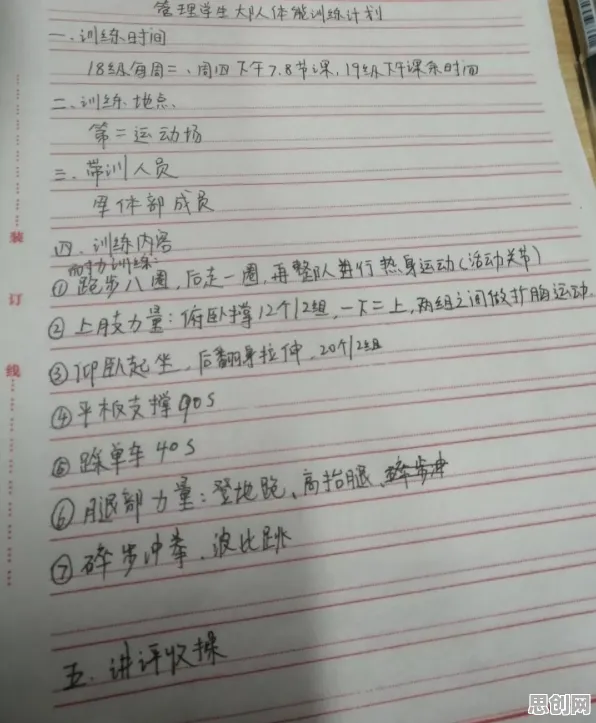 管理学生大队体能训练计划
一、训练时间
18级每周二、周四下午7.8节课,19级下午课余时间
二、训练地点
第二运动场
三、带训人员
军体部成员
四、训练内容
耐力训练:
①跑步八圈,后走一圈,再整队进行热身运动(活动关节)
②上肢力量:俯卧撑12个/2组,一下二上,两组之间做扩胸运动.
③仰卧起坐,后翻身拉伸,20个/2组
④平板支撑90s
⑤踩单车40s
⑥腿部力量:登地跑、高抬腿、碎步冲
⑦碎步冲拳、波比跳
五、讲评收操
装
订
线
思创网